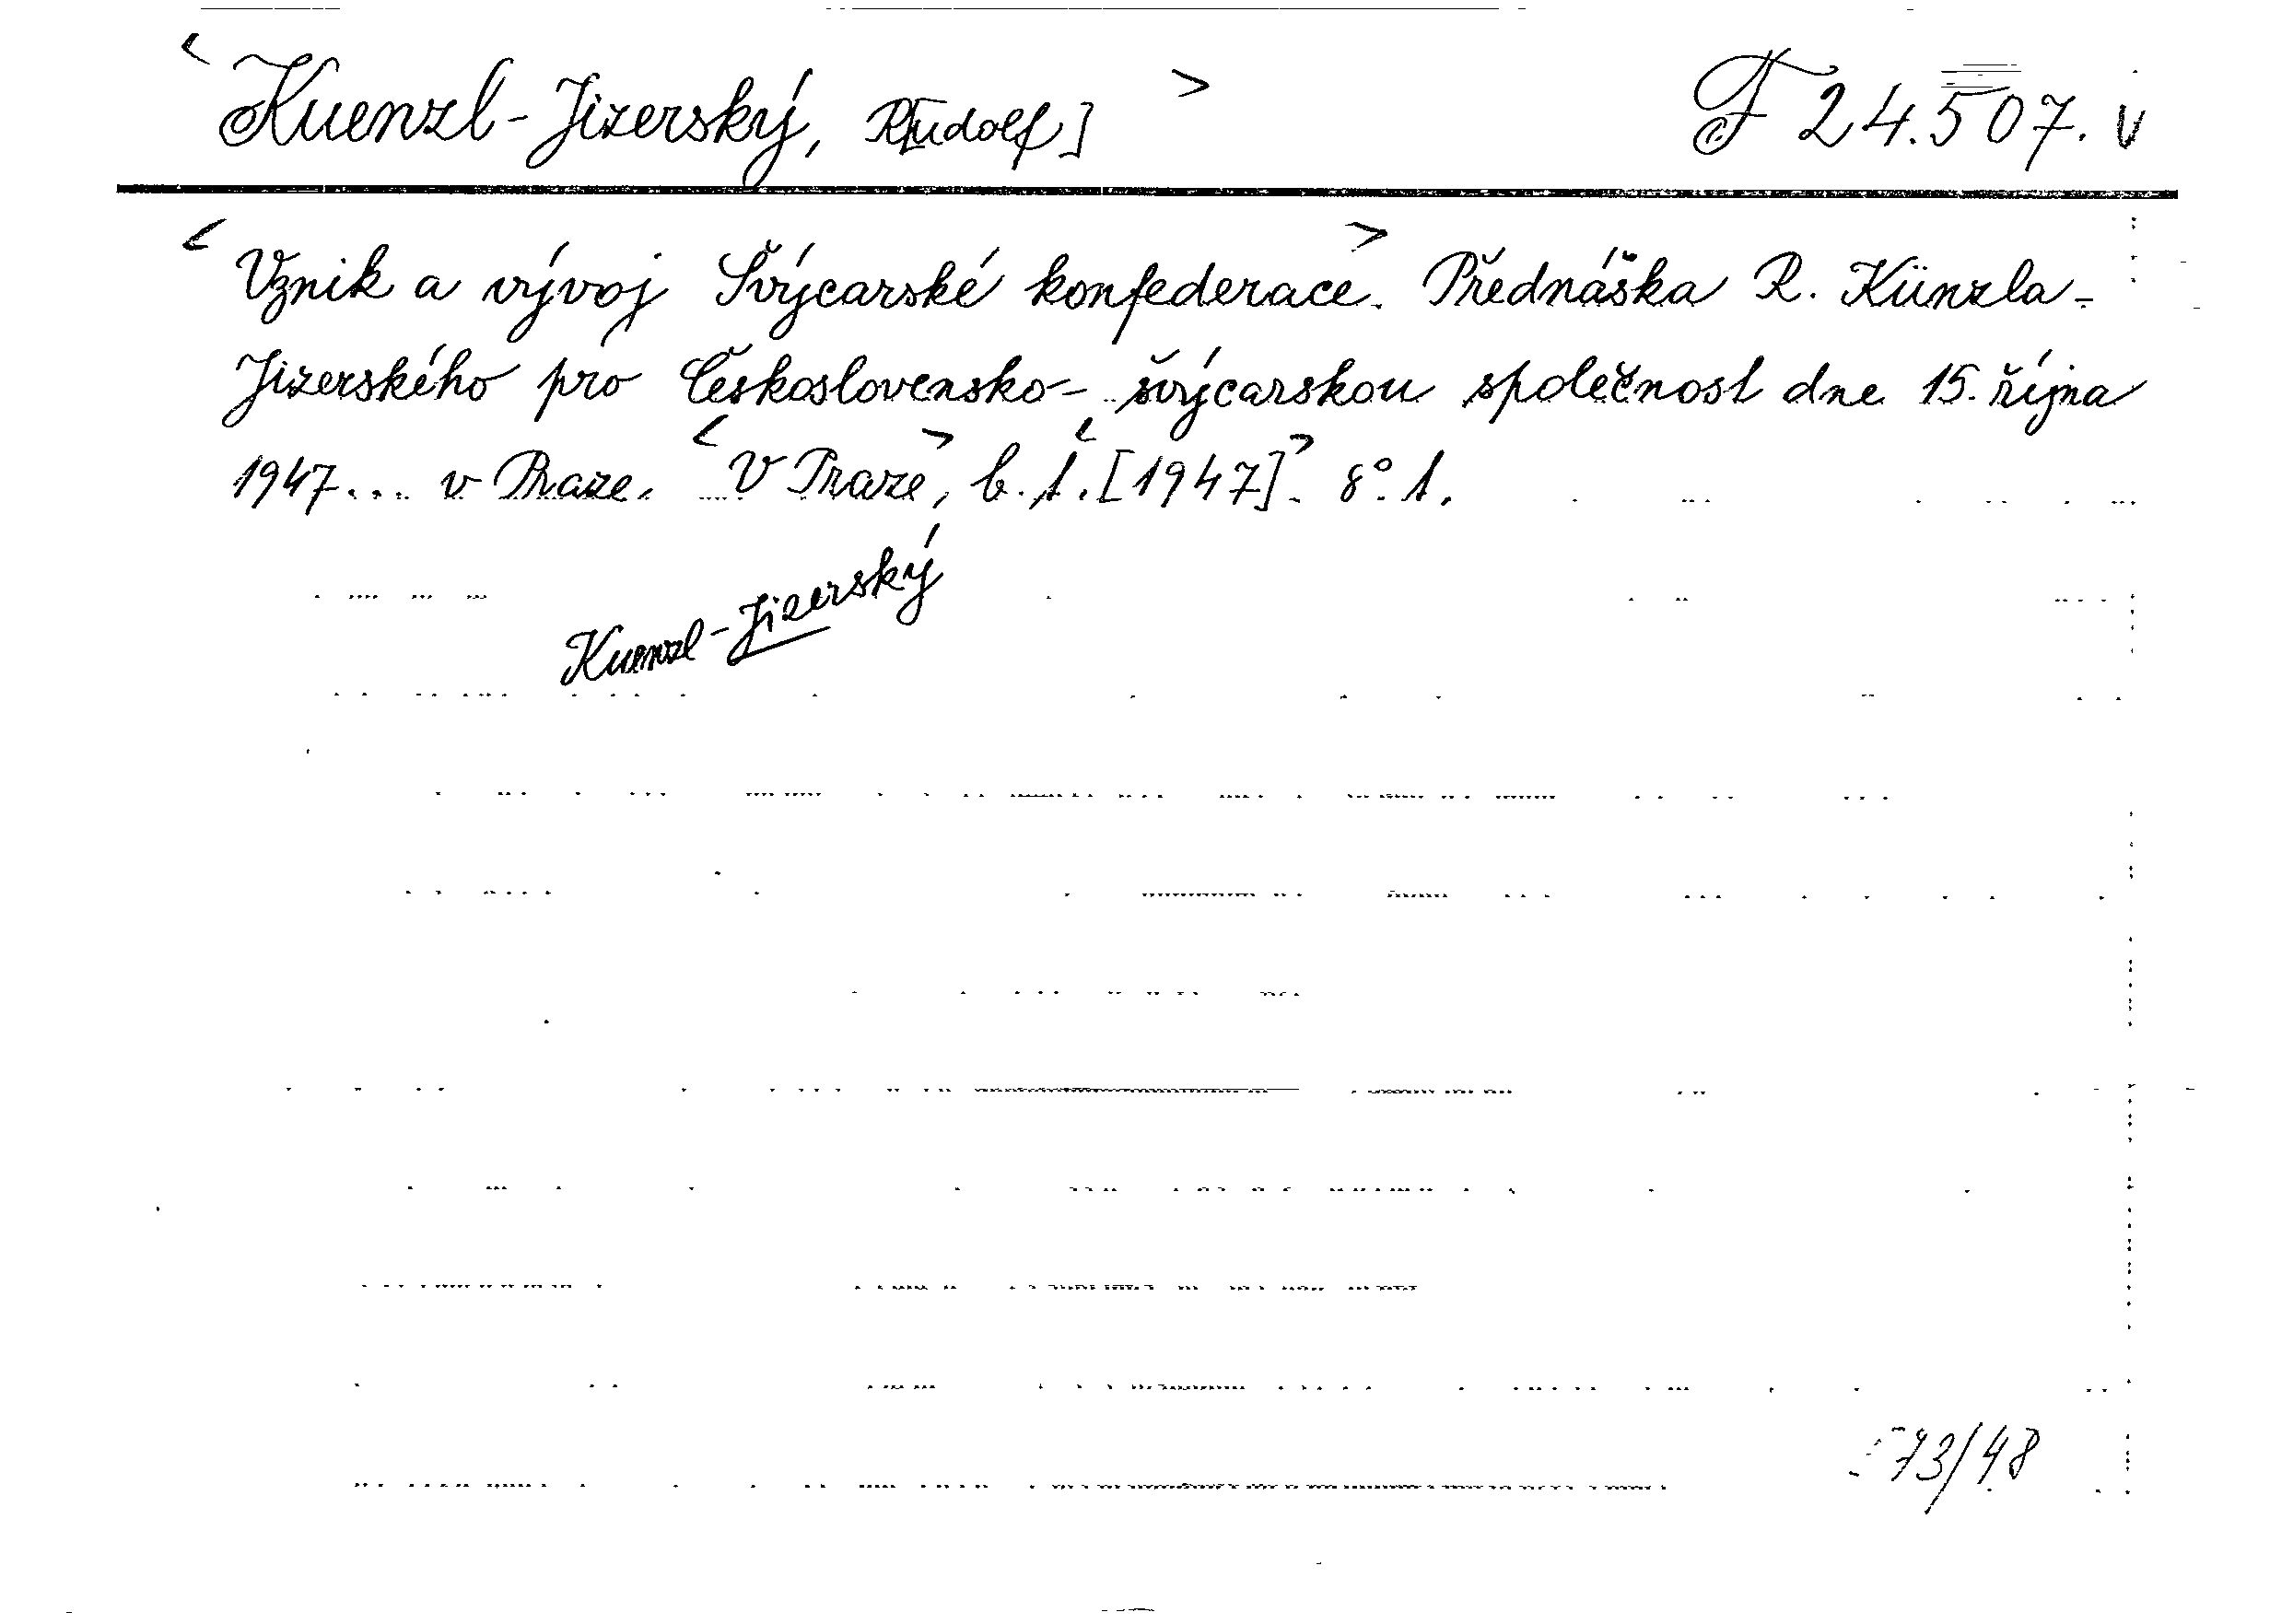 < Kuenzl-Jizerský, R[udolf] > F 24.507. v
< Vznik a vývoj Švýcarské konfederace. > Přednáška R. Künzla-
Jizerského pro Československo-švýcarskou společnost dne 15. října
1947... v Praze. < V Praze >, b. t. < [1947]. > 8°. 1.
Kuenzl-Jizerský
73/48